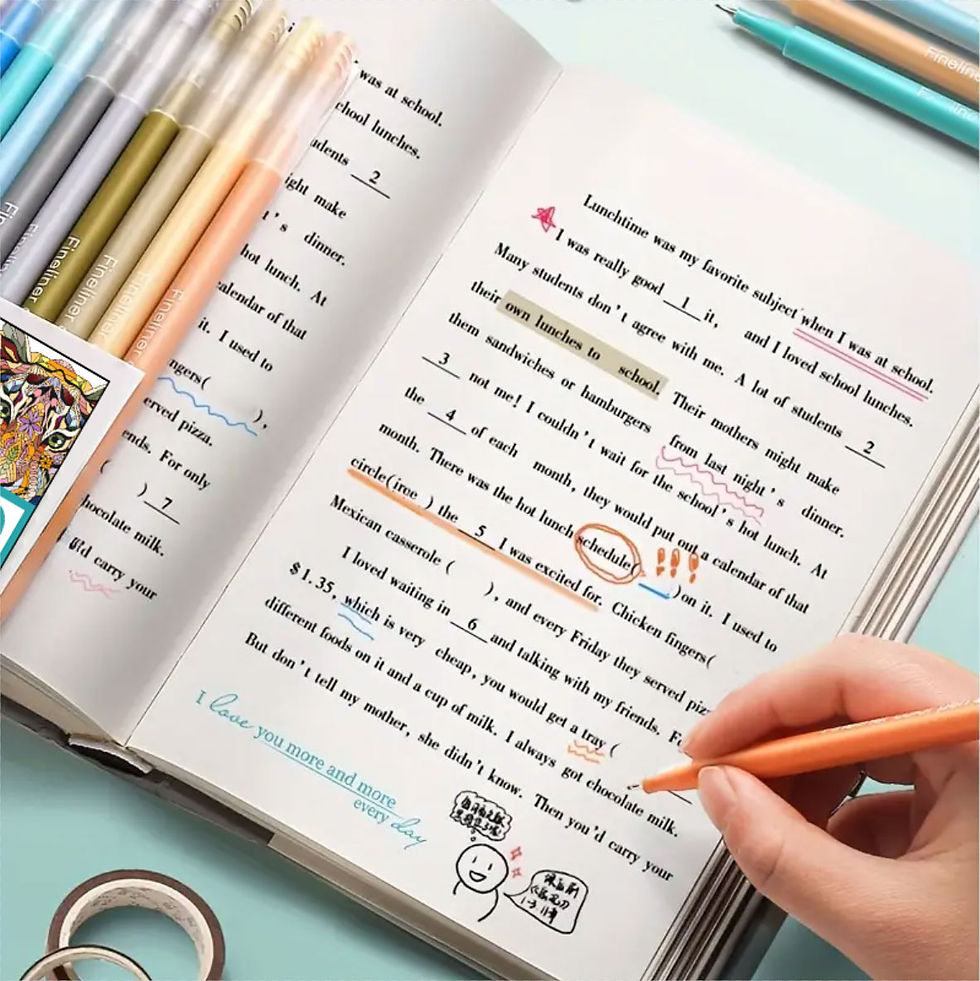 was at school.
chool lunches.
udents 2
ight make
's dinner.
hot lunch. At
calendar of that
it. I used to
ngers( ),
erved pizza.
ends. For only
( ) 7
hocolate milk.
carry your
Fineliner
Fineliner
Fineliner
Fineliner
Fineliner
Lunchtime was my favorite subject when I was at school.
I was really good 1 it, and I loved school lunches.
Many students don't agree with me. A lot of students 2
their own lunches to school. Their mothers might make
them sandwiches or hamburgers from last night's dinner.
3 not me! I couldn't wait for the school's hot lunch. At
the 4 of each month, they would put out a calendar of that
month. There was the hot lunch schedule( ) on it. I used to
circle(circe ) the 5 I was excited for. Chicken fingers(
Mexican casserole ( ), and every Friday they served
I loved waiting in 6 and talking with my friends.
$1.35, which is very cheap, you would get a tray (
different foods on it and a cup of milk. I always got chocolate milk.
But don't tell my mother, she didn't know. Then you'd carry your
I love you more and more
every day